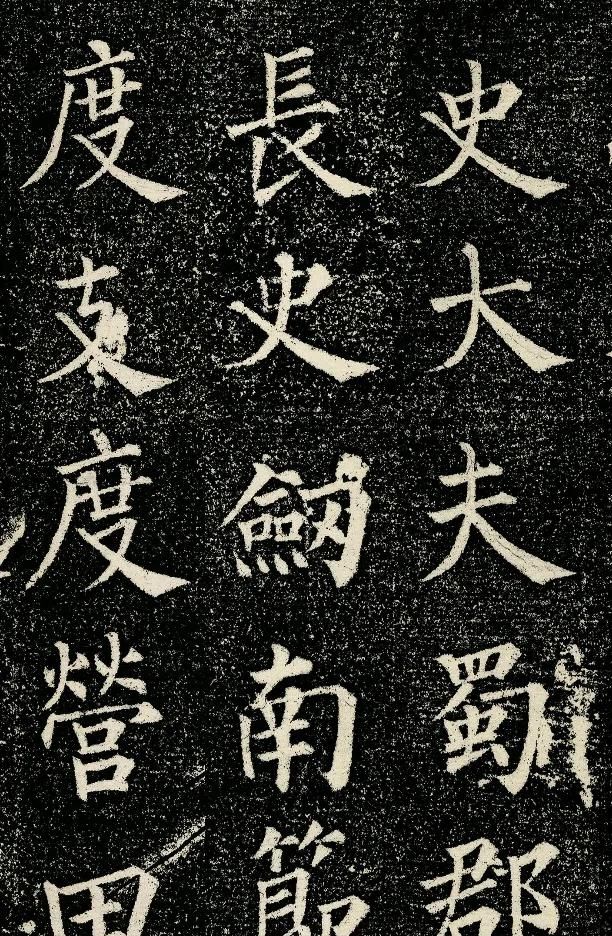 史大夫蜀郡
長史劒南節
度支度營田